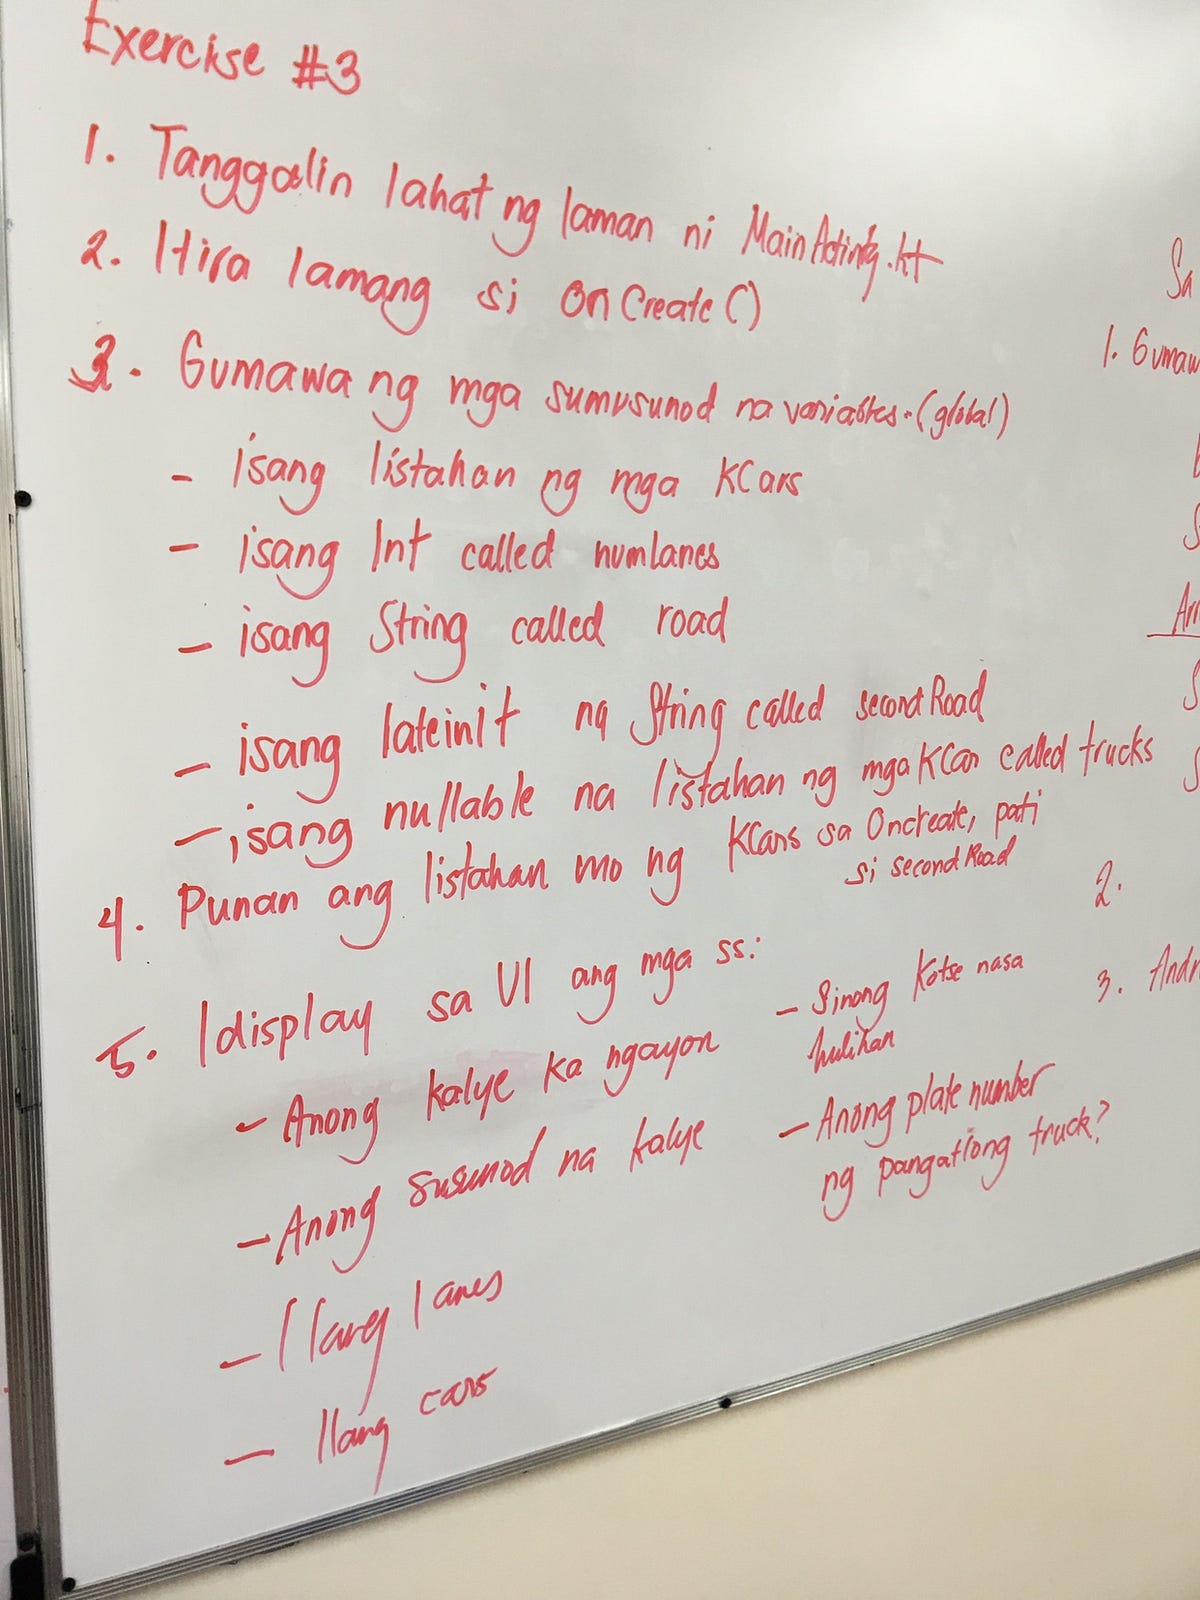 Exercise #3
1. Tanggalin lahat ng laman ni MainActivity.kt
2. Itira lamang si OnCreate()
3. Gumawa ng mga sumusunod na variables. (global)
- isang listahan ng mga KCars
- isang Int called numlanes
- isang String called road
- isang lateinit ng String called secondRoad
- isang nullable na listahan ng mga KCar called trucks
4. Punan ang listahan mo ng KCars sa Oncreate, pati
si secondRoad
5. Idisplay sa UI ang mga ss:
- Anong kalye ka ngayon
- Anong susunod na kalye
- Ilang lanes
- Ilang cars
- Sinong kotse nasa
hulihan
- Anong plate number
ng pangatlong truck?
Sa
1. Gumaw
2.
3. Andr